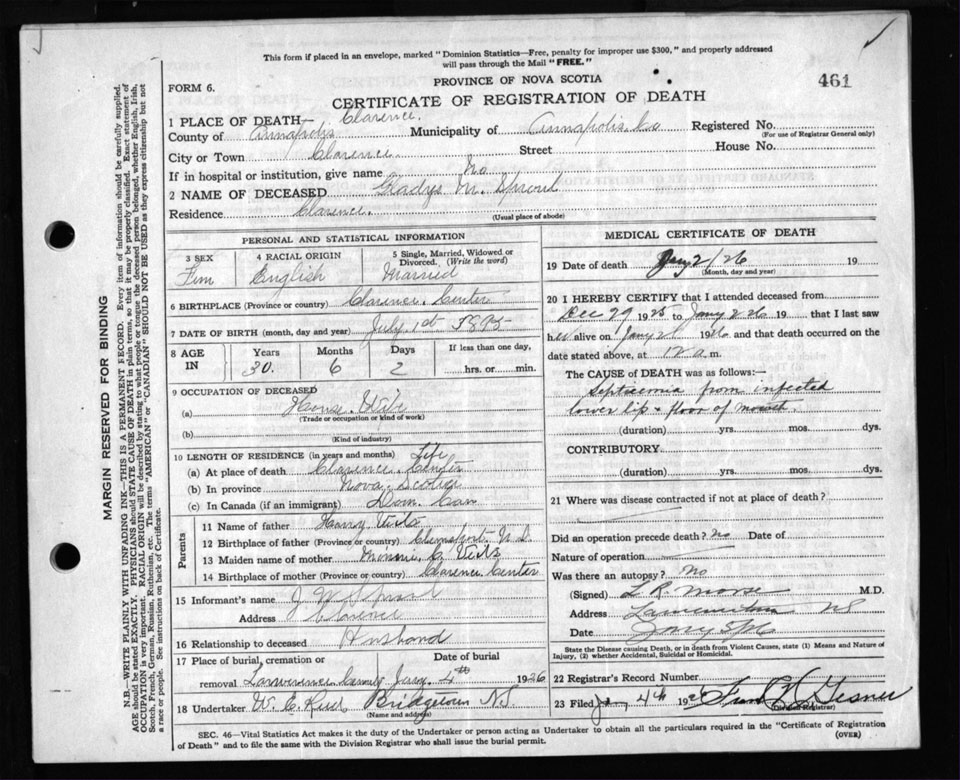 This form if placed in an envelope, marked "Dominion Statistics—Free, penalty for improper use $300," and properly addressed
will pass through the Mail "FREE."
PROVINCE OF NOVA SCOTIA
461
FORM 6.
CERTIFICATE OF REGISTRATION OF DEATH
1 PLACE OF DEATH— Clarence.
County of Annapolis Municipality of Annapolis Co Registered No.
(For use of Registrar General only)
City or Town Clarence. Street House No.
If in hospital or institution, give name No
2 NAME OF DECEASED Gladys M. Sproul
Residence Clarence.
(Usual place of abode)
PERSONAL AND STATISTICAL INFORMATION
3 SEX 4 RACIAL ORIGIN 5 Single, Married, Widowed or Divorced. (Write the word)
Fem English Married
6 BIRTHPLACE (Province or country) Clarence Center
7 DATE OF BIRTH (month, day and year) July 1st 1895
8 AGE IN Years Months Days If less than one day,
30. 6 2 hrs. or min.
9 OCCUPATION OF DECEASED
(a) House Wife
(Trade or occupation or kind of work)
(b)
(Kind of industry)
10 LENGTH OF RESIDENCE (in years and months) Life
(a) At place of death Clarence Center
(b) In province Nova Scotia
(c) In Canada (if an immigrant) Dom. Can
Parents
11 Name of father Harry
12 Birthplace of father (Province or country)
13 Maiden name of mother Minnie C.
14 Birthplace of mother (Province or country) Clarence Center
15 Informant's name J W Sproul
Address Clarence
16 Relationship to deceased Husband
17 Place of burial, cremation or Date of burial
removal Jany. 4th 1926
18 Undertaker W. C. Bridgetown NS
(Name and address)
MEDICAL CERTIFICATE OF DEATH
19 Date of death Jany 2/26 19
(Month, day and year)
20 I HEREBY CERTIFY that I attended deceased from
Dec 29 1925 to Jany 2 26 19 that I last saw
her alive on Jany 2 1926 and that death occurred on the
date stated above, at 12 a m.
The CAUSE of DEATH was as follows:—
Septicemia from infected
lower lip & floor of mouth.
(duration) yrs. mos. dys.
CONTRIBUTORY.
(duration) yrs. mos. dys.
21 Where was disease contracted if not at place of death?
Did an operation precede death? No Date of
Nature of operation
Was there an autopsy? No
(Signed) L R Morse M.D.
Address Lawrencetown NS
Date
State the Disease causing Death, or in death from Violent Causes, state (1) Means and Nature of
Injury, (2) whether Accidental, Suicidal or Homicidal.
22 Registrar's Record Number
23 Filed Jany 4th 192 Gesner
SEC. 46—Vital Statistics Act makes it the duty of the Undertaker or person acting as Undertaker to obtain all the particulars required in the "Certificate of Registration
of Death" and to file the same with the Division Registrar who shall issue the burial permit.
(OVER)
MARGIN RESERVED FOR BINDING
N.B.—WRITE PLAINLY WITH UNFADING INK—THIS IS A PERMANENT RECORD. Every item of information should be carefully supplied.
AGE should be stated EXACTLY. PHYSICIANS should STATE CAUSE OF DEATH in plain terms, so that it may be properly classified. Exact statement of
OCCUPATION is very important. RACIAL ORIGIN will be described by stating to what people or tongue the deceased person belonged, whether English, Irish,
Scotch, French, German, Russian, Ruthenian, etc. The terms "AMERICAN" or "CANADIAN" SHOULD NOT BE USED as they express citizenship but not
a race or people. See instructions on back of Certificate.